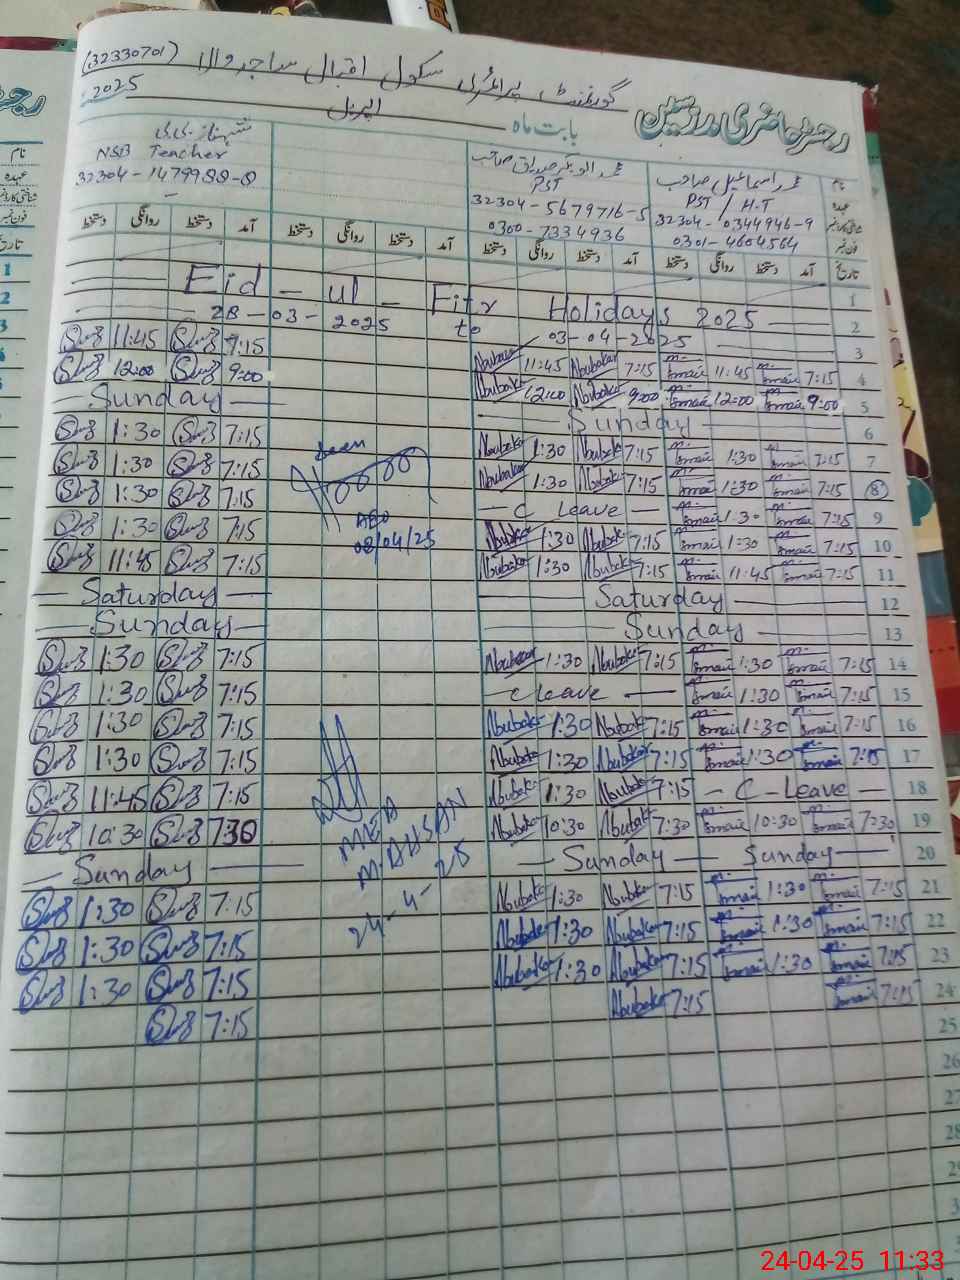 (32330701) گورنمنٹ پرائمری سکول اقبال ساجد والا
رجسٹر حاضری مدرسین بابت ماہ اپریل 2025
نام محمد اسماعیل صاحب محمد ابوبکر صدیق صاحب شہناز بی بی
عہدہ PST / H.T PST NSB Teacher
شناختی کارڈ نمبر 32304-0344946-9 32304-5679716-5 32304-1479988-8
فون نمبر 0301-4604564 0300-7334936
تاریخ آمد دستخط روانگی دستخط آمد دستخط روانگی دستخط آمد دستخط روانگی دستخط
1 Eid - ul - Fitr Holidays 2025
2 28-03-2025 to 03-04-2025
3
11:45 9:15 Abubakar 11:45 Abubakar 7:15 M. Ismail 11:45 M. Ismail 7:15 4
12:00 9:00 Abubakar 12:00 Abubakar 9:00 M. Ismail 12:00 M. Ismail 9:00 5
Sunday Sunday 6
1:30 7:15 Abubakar 1:30 Abubakar 7:15 M. Ismail 1:30 M. Ismail 7:15 7
1:30 7:15 Abubakar 1:30 Abubakar 7:15 M. Ismail 1:30 M. Ismail 7:15 8
1:30 7:15 C Leave M. Ismail 1:30 M. Ismail 7:15 9
1:30 7:15 Abubakar 1:30 Abubakar 7:15 M. Ismail 1:30 M. Ismail 7:15 10
11:45 7:15 Abubakar 1:30 Abubakar 7:15 M. Ismail 11:45 M. Ismail 7:15 11
Saturday Saturday 12
Sunday Sunday 13
1:30 7:15 Abubakar 1:30 Abubakar 7:15 M. Ismail 1:30 M. Ismail 7:15 14
1:30 7:15 C Leave M. Ismail 1:30 M. Ismail 7:15 15
1:30 7:15 Abubakar 1:30 Abubakar 7:15 M. Ismail 1:30 M. Ismail 7:15 16
1:30 7:15 Abubakar 1:30 Abubakar 7:15 M. Ismail 1:30 M. Ismail 7:15 17
11:45 7:15 Abubakar 1:30 Abubakar 7:15 C-Leave 18
10:30 7:30 Abubakar 10:30 Abubakar 7:30 M. Ismail 10:30 M. Ismail 7:30 19
Sunday Sunday Sunday 20
1:30 7:15 Abubakar 1:30 Abubakar 7:15 M. Ismail 1:30 M. Ismail 7:15 21
1:30 7:15 Abubakar 1:30 Abubakar 7:15 M. Ismail 1:30 M. Ismail 7:15 22
1:30 7:15 Abubakar 1:30 Abubakar 7:15 M. Ismail 1:30 M. Ismail 7:15 23
7:15 Abubakar 7:15 M. Ismail 7:15 24
25
26
27
28
29
Seen
AEO
08/04/25
MEA
M. AHSAN
24-4-25
24-04-25 11:33